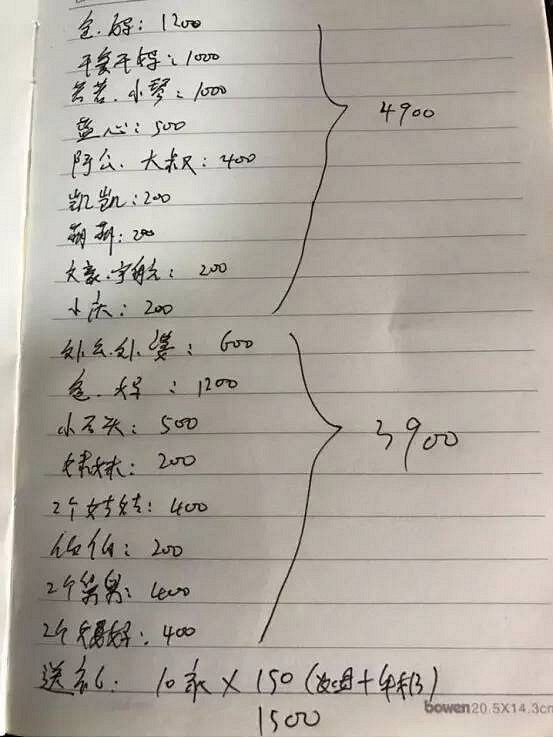 爸.妈: 1200
干爹干妈: 1000
芸芸.小琴: 1000
蓝心: 500
阿公. 大叔: 400
凯凯: 200
萌萌: 200
文豪.宇航: 200
小庆: 200
4900
外公.外婆: 600
爸.妈: 1200
小石头: 500
妹妹: 200
2个姑姑: 400
伯伯: 200
2个舅舅: 400
2个: 400
3900
送礼: 10家 × 150 (+)
1500
bowen 20.5X14.3cm